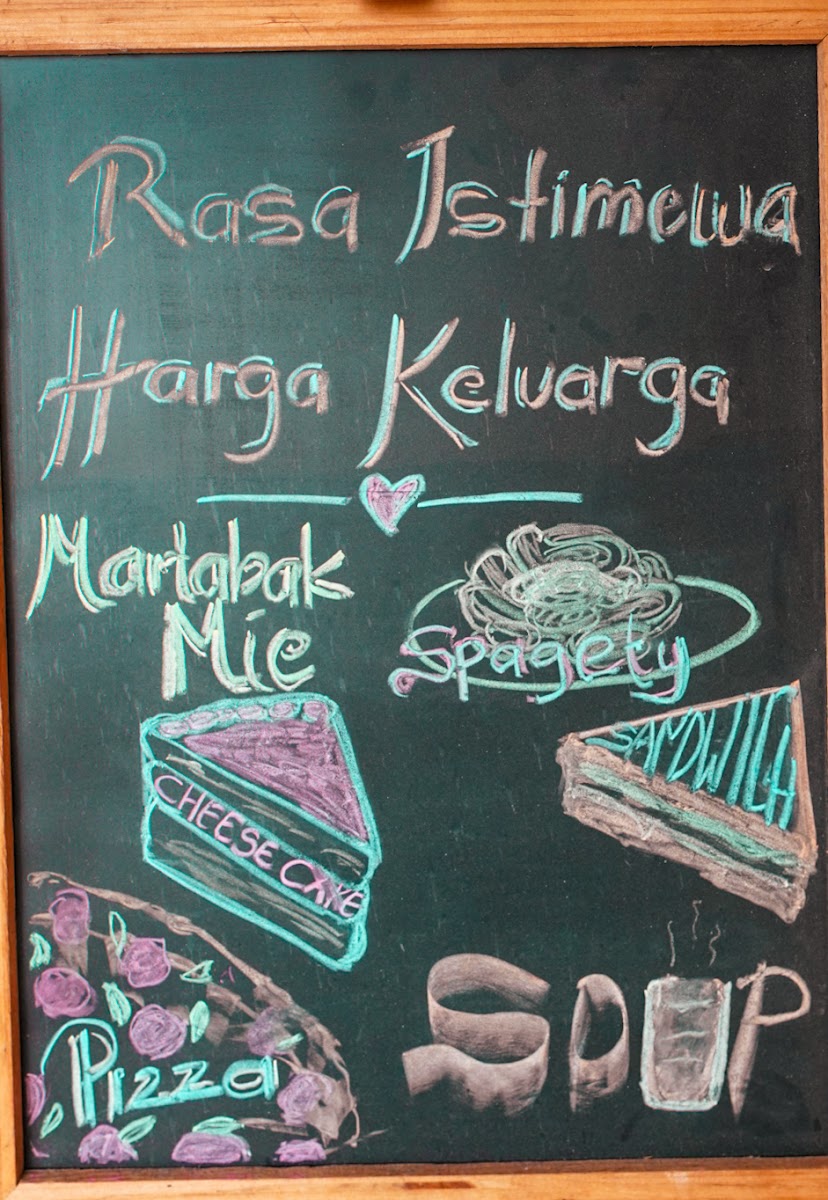 Rasa Istimewa
Harga Keluarga
Martabak
Mie
Spagety
SANDWICH
CHEESE CAKE
Pizza
SOUP